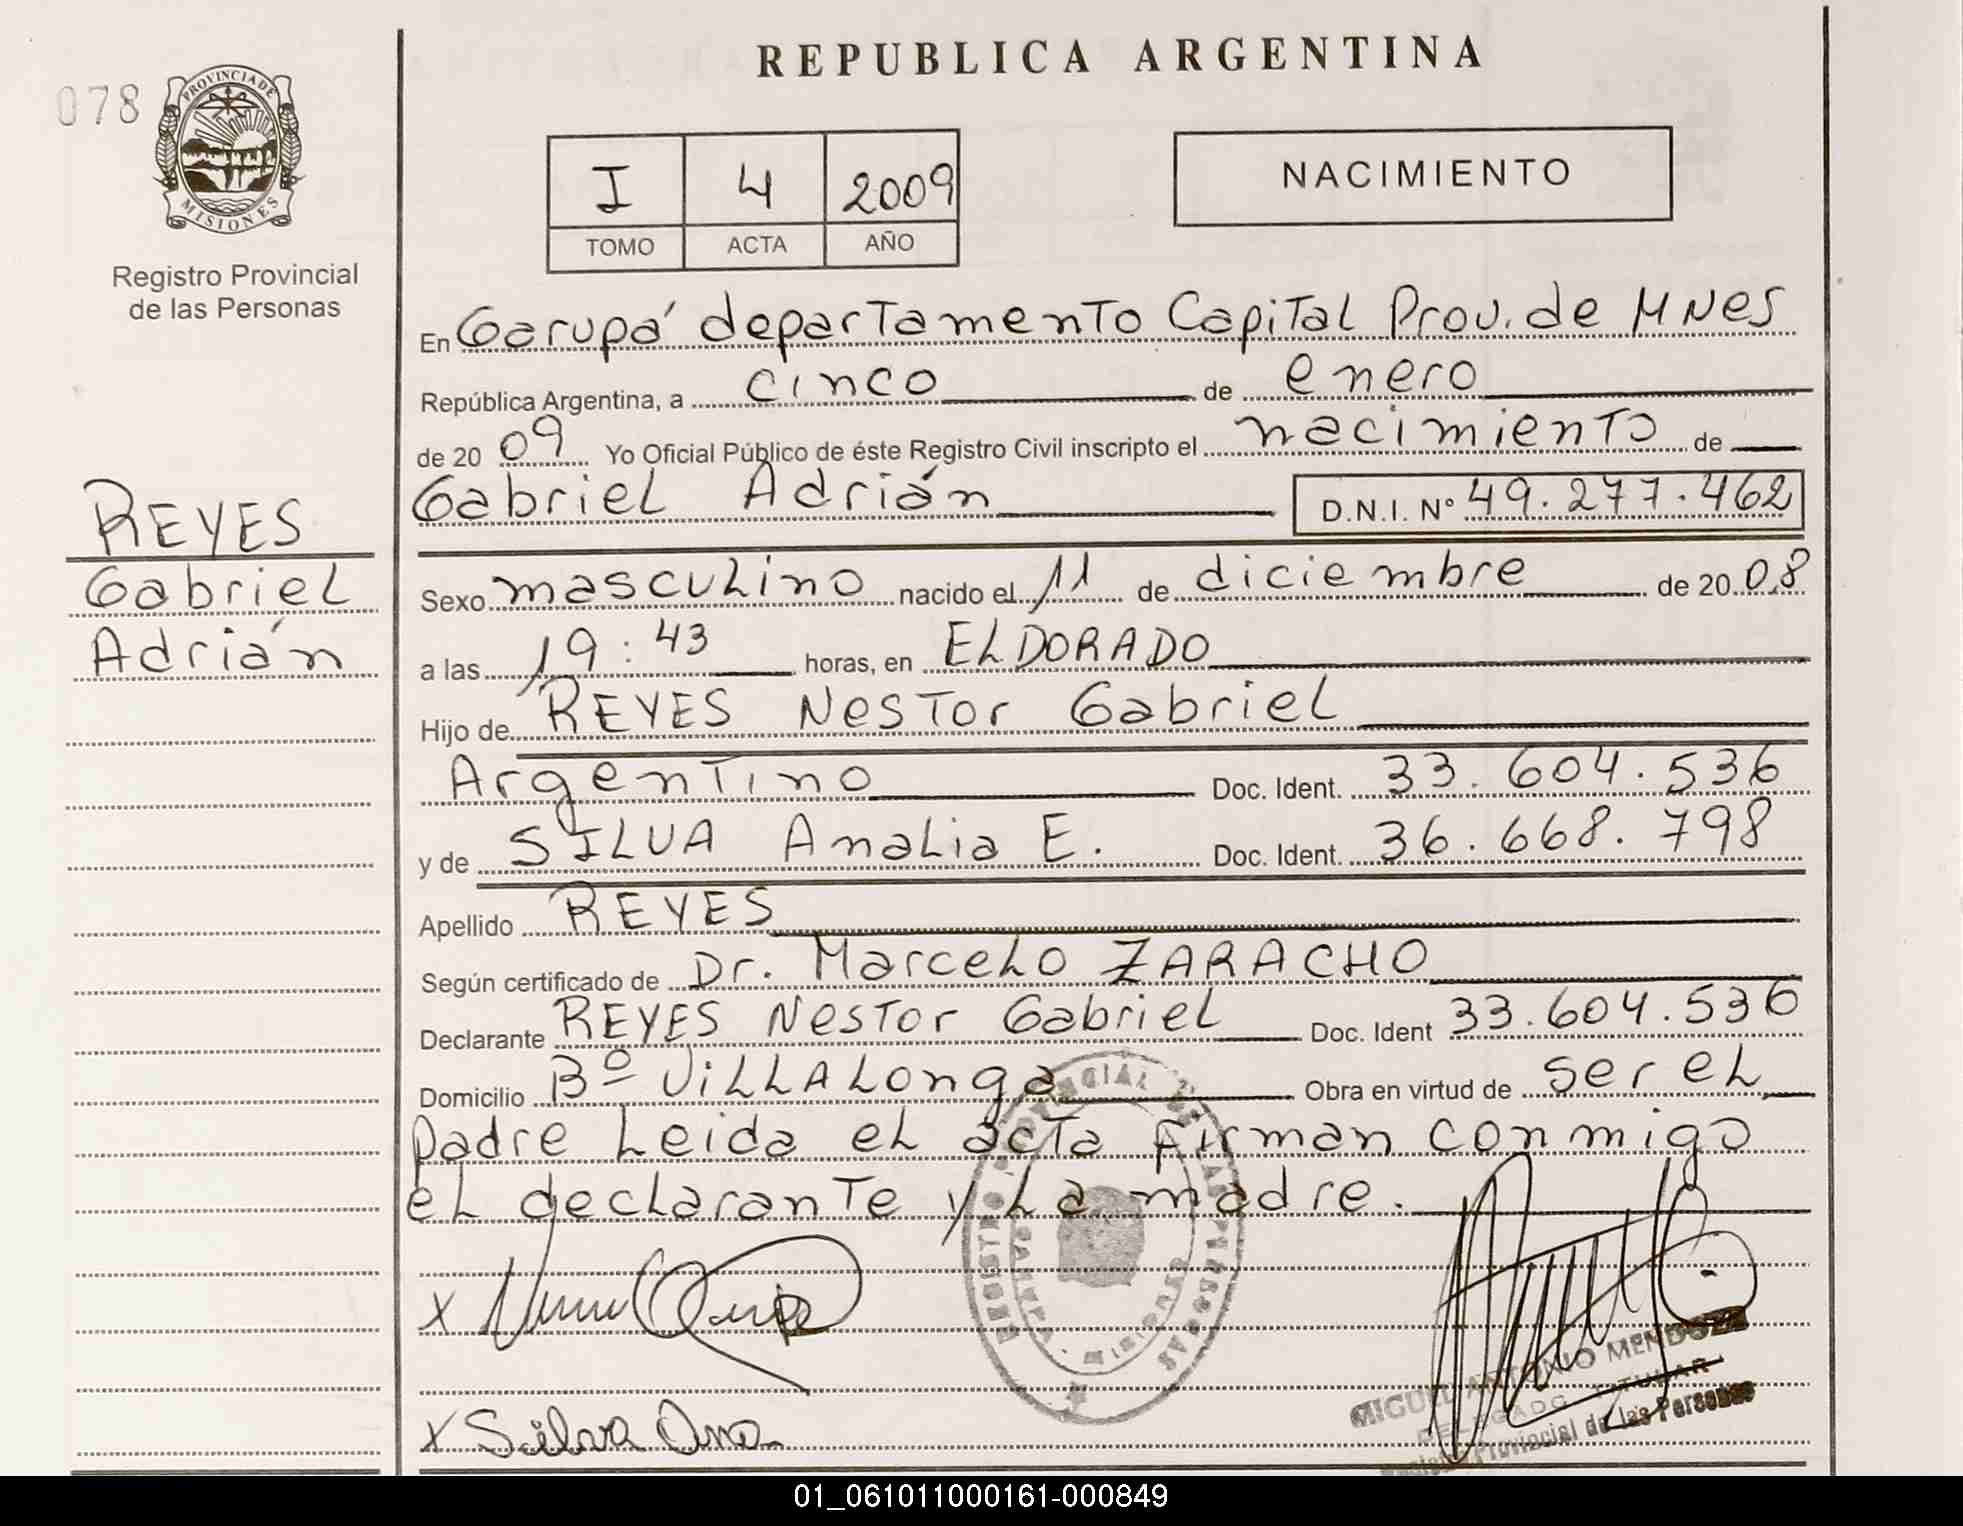 REPUBLICA ARGENTINA
078
PROVINCIA DE
MISIONES
Registro Provincial
de las Personas
I 4 2009
TOMO ACTA AÑO
NACIMIENTO
En Garupá departamento Capital Prov. de MNes
República Argentina, a cinco de enero
de 2009 Yo Oficial Público de éste Registro Civil inscripto el nacimiento de
Gabriel Adrián D.N.I. Nº 49.277.462
REYES
Gabriel
Adrián
Sexo masculino nacido el 11 de diciembre de 2008
a las 19:43 horas, en ELDORADO
Hijo de REYES Nestor Gabriel
Argentino Doc. Ident. 33.604.536
y de SILVA Analia E. Doc. Ident. 36.668.798
Apellido REYES
Según certificado de Dr. Marcelo ZARACHO
Declarante REYES Nestor Gabriel Doc. Ident 33.604.536
Domicilio Bº ViLLALonga Obra en virtud de ser el
padre Leida el acta firman conmigo
el declarante y la madre.
REGISTRO PROVINCIAL DE LAS PERSONAS
GARUPA
MISIONES
x
x Silva Ana
MIGUEL ANTONIO MENDOZA
DELEGADO TITULAR
Registro Provincial de las Personas
01_061011000161-000849